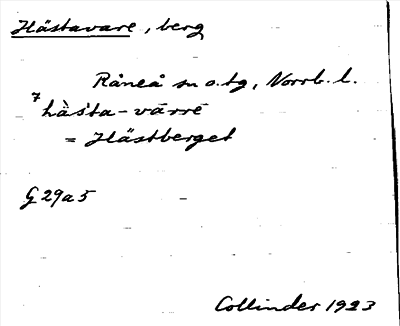 Hästavare, berg
Råneå sn o. tg, Norrb. l.
hästa-várrē
= Hästberget
G 29a5
Collinder 1923